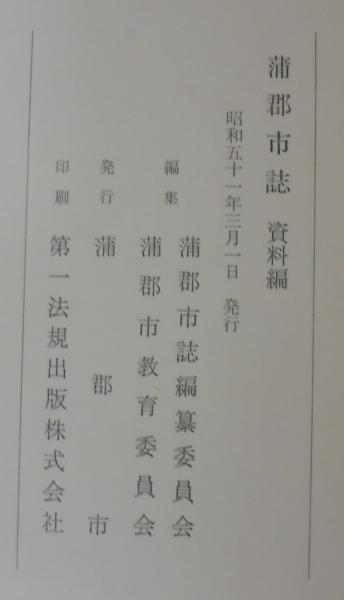 蒲郡市誌 資料編
昭和五十一年三月一日 発行
編集 蒲郡市誌編纂委員会
蒲郡市教育委員会
発行 蒲郡市
印刷 第一法規出版株式会社